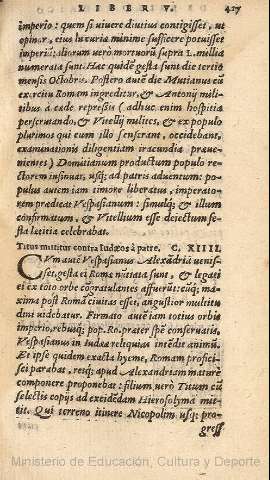 LIBER IV. 427
imperio: quem si viuere diutius contigisset, ut
opinor, eius luxuria minime sufficere potuisset
imperiũ: aliorum verò mortuorũ supra L. millia
numerata sunt. Hæc quidẽ gesta sunt die tertio
mensis Octobris. Postero autẽ die Mutianus cũ
exercitu Romam ingreditur, & Antonij mili-
tibus à cæde repressis (adhuc enim hospitia
perscrutando, & Vitellij milites, & ex populo
plurimos qui cum illo senserant, occidebant,
examinationis diligentiam iracundia præue-
nientes) Domitianum productum populo re-
ctorem insinuat, usq; ad patris aduentum: po-
pulus autem iam timore liberatus, imperato-
rem prædicat Vespasianum: simulq; & illum
confirmatum, & Vitellium esse deiectum fe-
sta lætitia celebrabat.
Titus mittitur contra Iudæos à patre. C. XIIII.
CVm autẽ Vespasianus Alexãdriã uenis-
set, gesta ei Romæ nũtiata sunt, & legati
ei ex toto orbe cõgratulantes affuerũt: cũq; ma-
xima post Romã ciuitas esset, angustior multitu
dini uidebatur. Firmato autẽ iam totius orbis
imperio, rebusq; pop. Ro. præter spẽ conseruatis,
Vespasianus in Iudææ reliquias intẽdit animũ.
Et ipse quidem exacta hyeme, Romam profici-
sci parabat, resq; apud Alexandriam mature
componere proponebat: filium verò Titum cũ
selectis copijs ad excidẽdam Hierosolymã mit-
tit. Qui terreno itinere Nicopolim usq; pro-
gress
Ministerio de Educación, Cultura y Deporte